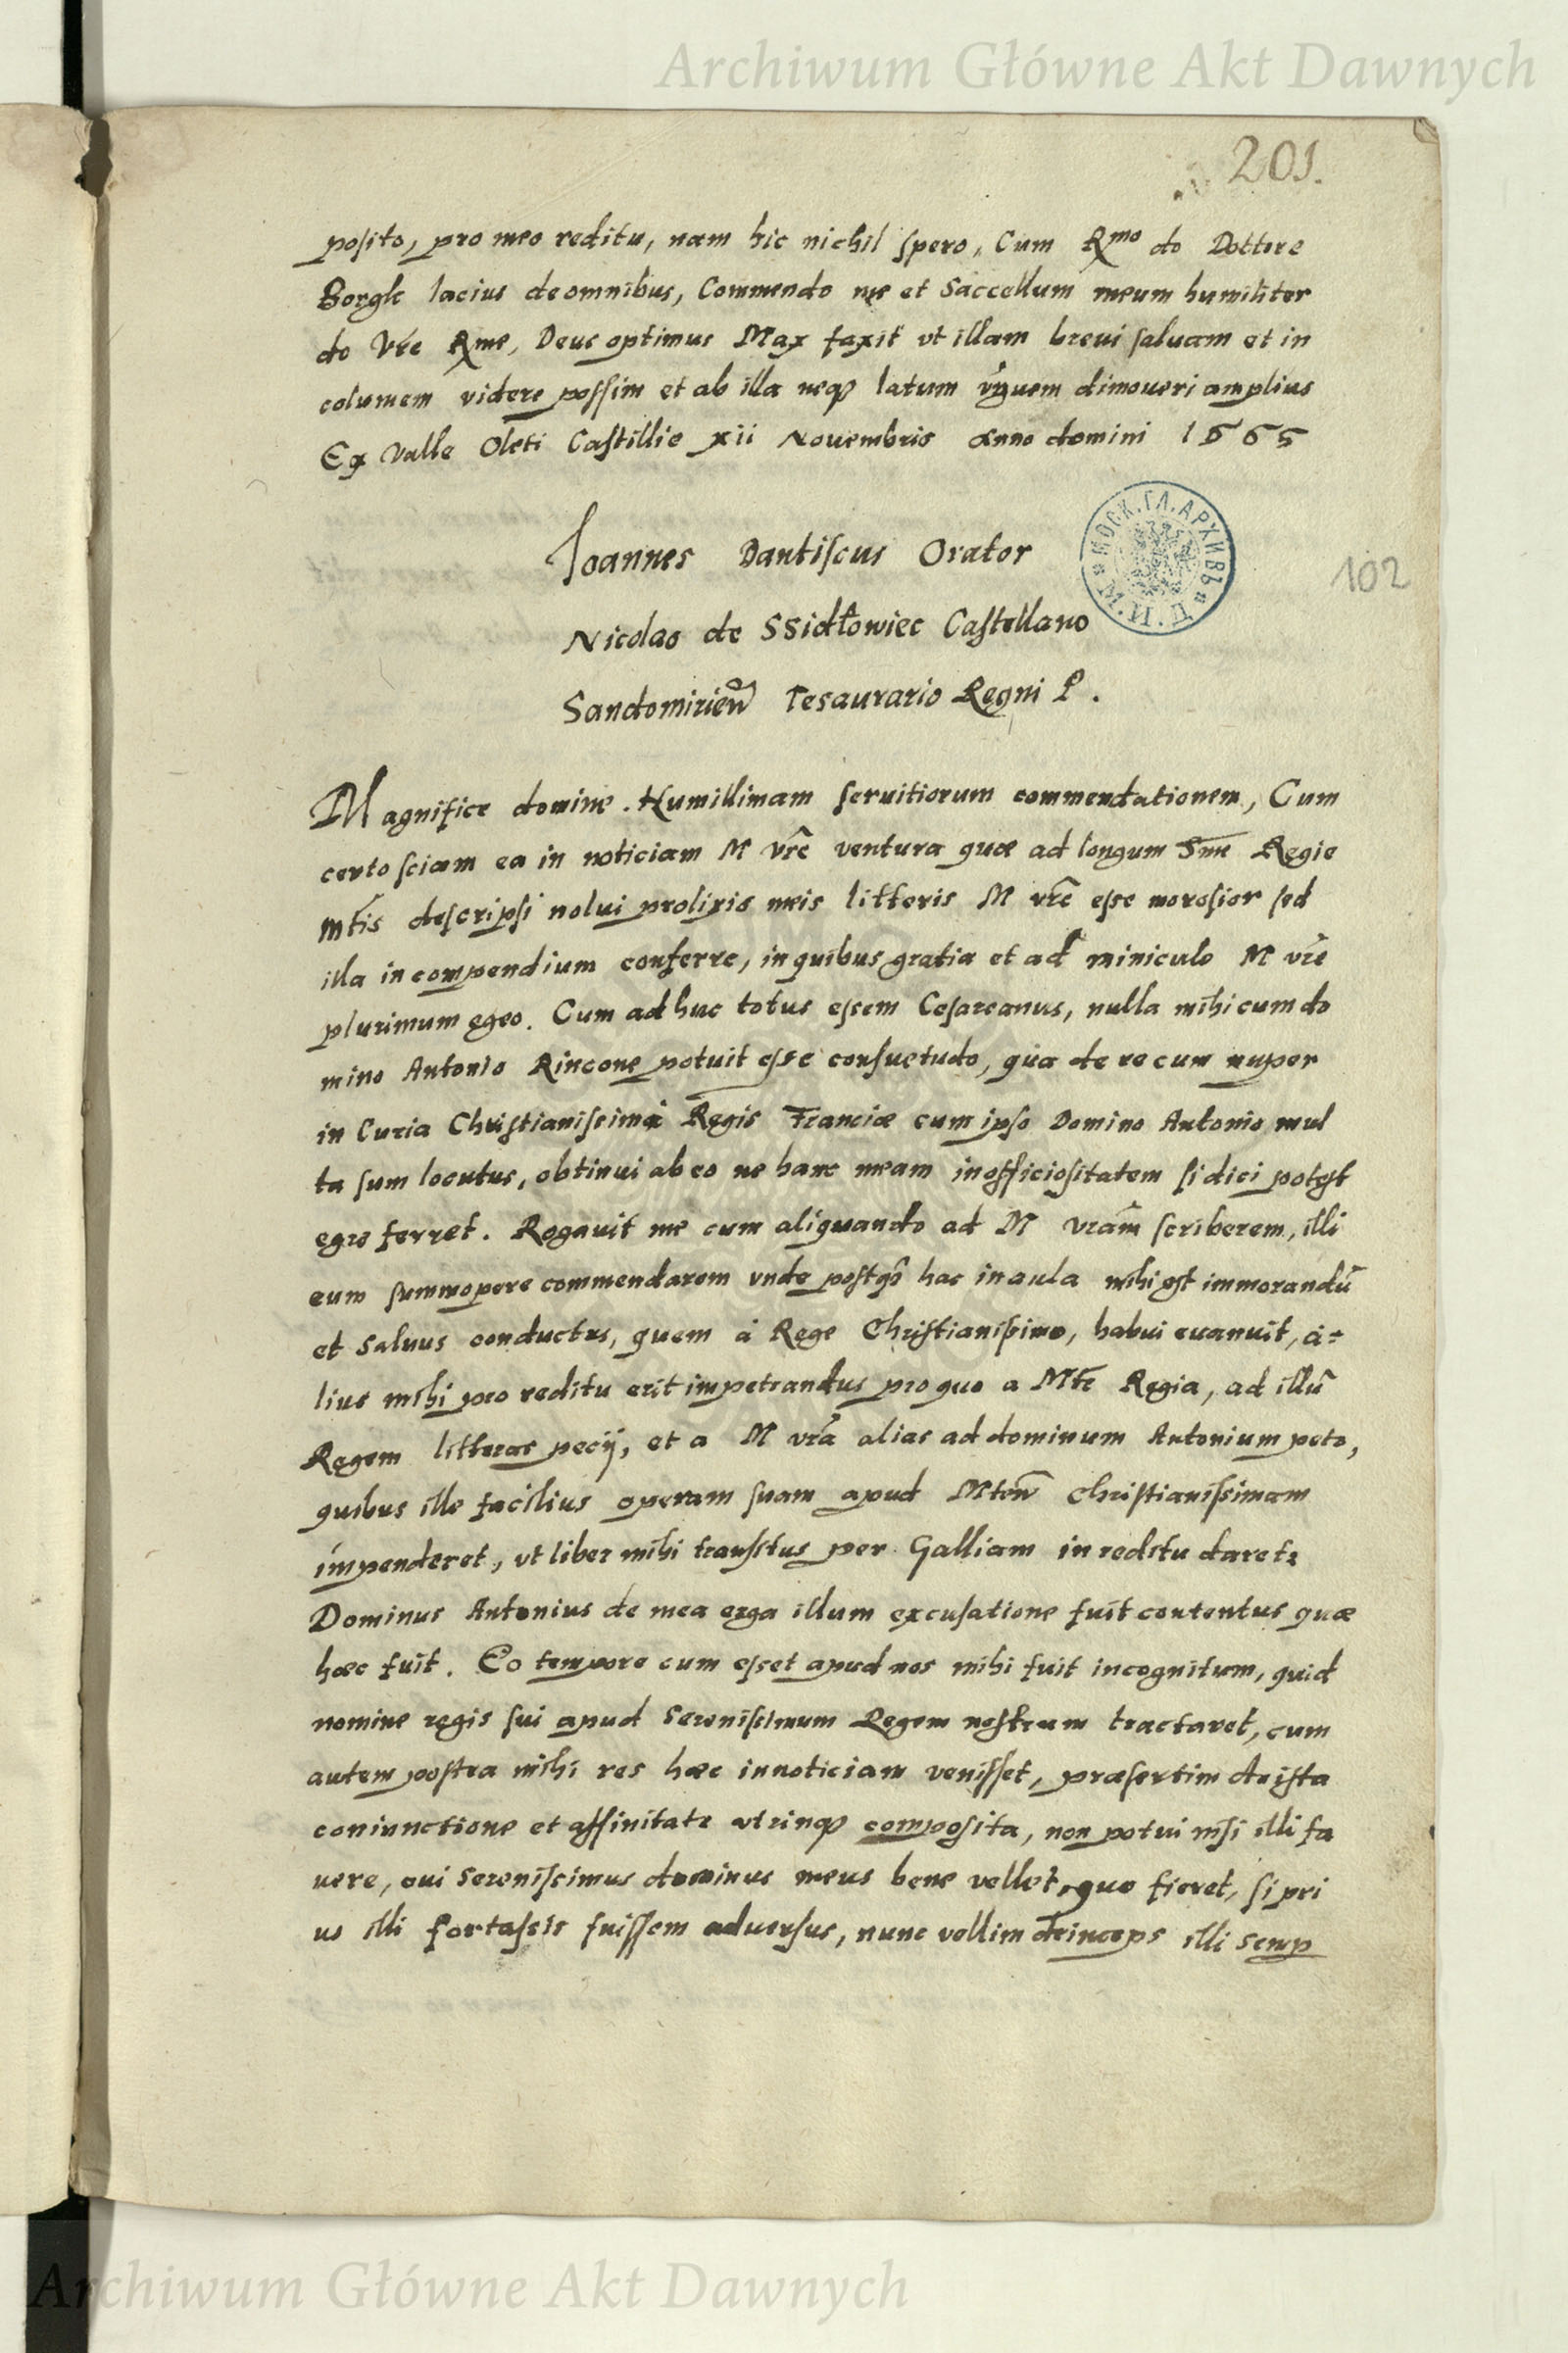 Archiwum Główne Akt Dawnych
201.
posito, pro meo reditu, nam hic nichil spero, Cum Rmo do Dottore
Borgk lacius de omnibus, Commendo me et Saccellum meum humiliter
do Vre Rme, Deus optimus Max faxit vt illam breui saluam et in
columem videre possim et ab illa neqȝ latum vnguem dimoueri amplius
Ex Valle Oleti Castillie xii Nouembris Anno domini
Ioannes Dantiscus Orator
МОСК. ГЛ. АРХИВЪ М. И. Д.
102
Nicolao de Ssidłowiec Castellano
Sandomirieñ Tesaurario Regni P.
Magnifice domine. Humillimam seruitiorum commendationem, Cum
certo sciam ea in noticiam M vrẽ ventura quæ ad longum Sme Regie
Mtis descripsi nolui prolixis meis litteris M vrẽ esse morosior sed
illa in compendium conferre, in quibus gratia et ad miniculo M vrẽ
plurimum egeo. Cum ad huc totus essem Cesareanus, nulla mihi cum do
mino Antonio Rincone potuit esse consuetudo, qua de re cum nuper
in Curia Christianissimi Regis Franciæ cum ipso Domino Antonio mul
ta sum locutus, obtinui ab eo ne hanc meam inofficiositatem si dici potest
egre ferret. Rogauit me cum aliquando ad M vrãm scriberem, illi
eum summopere commendarem vnde postqȝ hac in aula mihi est immorandũ
et Saluus conductus, quem à Rege Christianissimo, habui euanuit, a=
lius mihi pro reditu erit impetrandus pro quo a Mte Regia, ad illũ
Regem litteras pecij, et a M vrã alias ad dominum Antonium peto,
quibus ille facilius operam suam apud Mtem Christianissimam
impenderet, vt liber mihi transitus per Galliam in reditu daret2
Dominus Antonius de mea erga illum excusatione fuit contentus quæ
hæc fuit. Eo tempore cum esset apud nos mihi fuit incognitum, quid
nomine regis sui apud Serenissimum Regem nostrum tractaret, cum
autem postea mihi res hæc in noticiam venisset, præsertim de ista
coniunctione et affinitate vtrinqȝ composita, non potui nisi illi fa
uere, cui Serenissimus dominus meus bene vellet, quo fieret, si pri
us illi fortassis fuissem aduersus, nunc vellim deinceps illi semp
Archiwum Główne Akt Dawnych